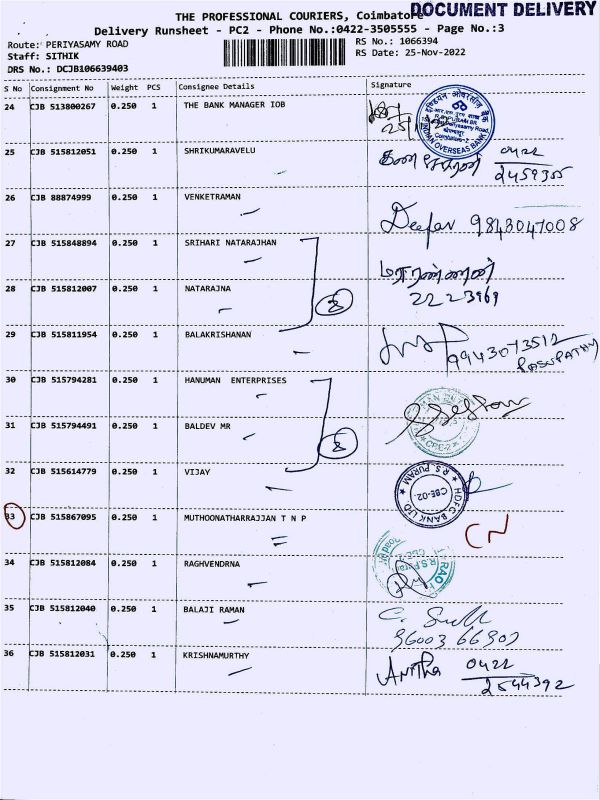 DOCUMENT DELIVERY
THE PROFESSIONAL COURIERS, Coimbatore
Delivery Runsheet - PC2 - Phone No.:0422-3505555 - Page No.:3
Route: PERIYASAMY ROAD
Staff: SITHIK
DRS No.: DCJB106639403
RS No.: 1066394
RS Date: 25-Nov-2022
S No Consignment No Weight PCS Consignee Details Signature
24 CJB 513800267 0.250 1 THE BANK MANAGER IOB
INDIAN OVERSEAS BANK
25 CJB 515812051 0.250 1 SHRIKUMARAVELU 0422
2459355
26 CJB 88874999 0.250 1 VENKETRAMAN
9843047008
27 CJB 515848894 0.250 1 SRIHARI NATARAJHAN
28 CJB 515812007 0.250 1 NATARAJNA
2223969
29 CJB 515811954 0.250 1 BALAKRISHANAN
9943073512
PASUPATHY
30 CJB 515794281 0.250 1 HANUMAN ENTERPRISES
31 CJB 515794491 0.250 1 BALDEV MR
32 CJB 515614779 0.250 1 VIJAY
HDFC BANK LTD. R.S. PURAM
CBE-02.
33 CJB 515867095 0.250 1 MUTHOONATHARRAJJAN T N P
CN
34 CJB 515812084 0.250 1 RAGHVENDRNA
35 CJB 515812040 0.250 1 BALAJI RAMAN
36 CJB 515812031 0.250 1 KRISHNAMURTHY Anitha 0422
2544392